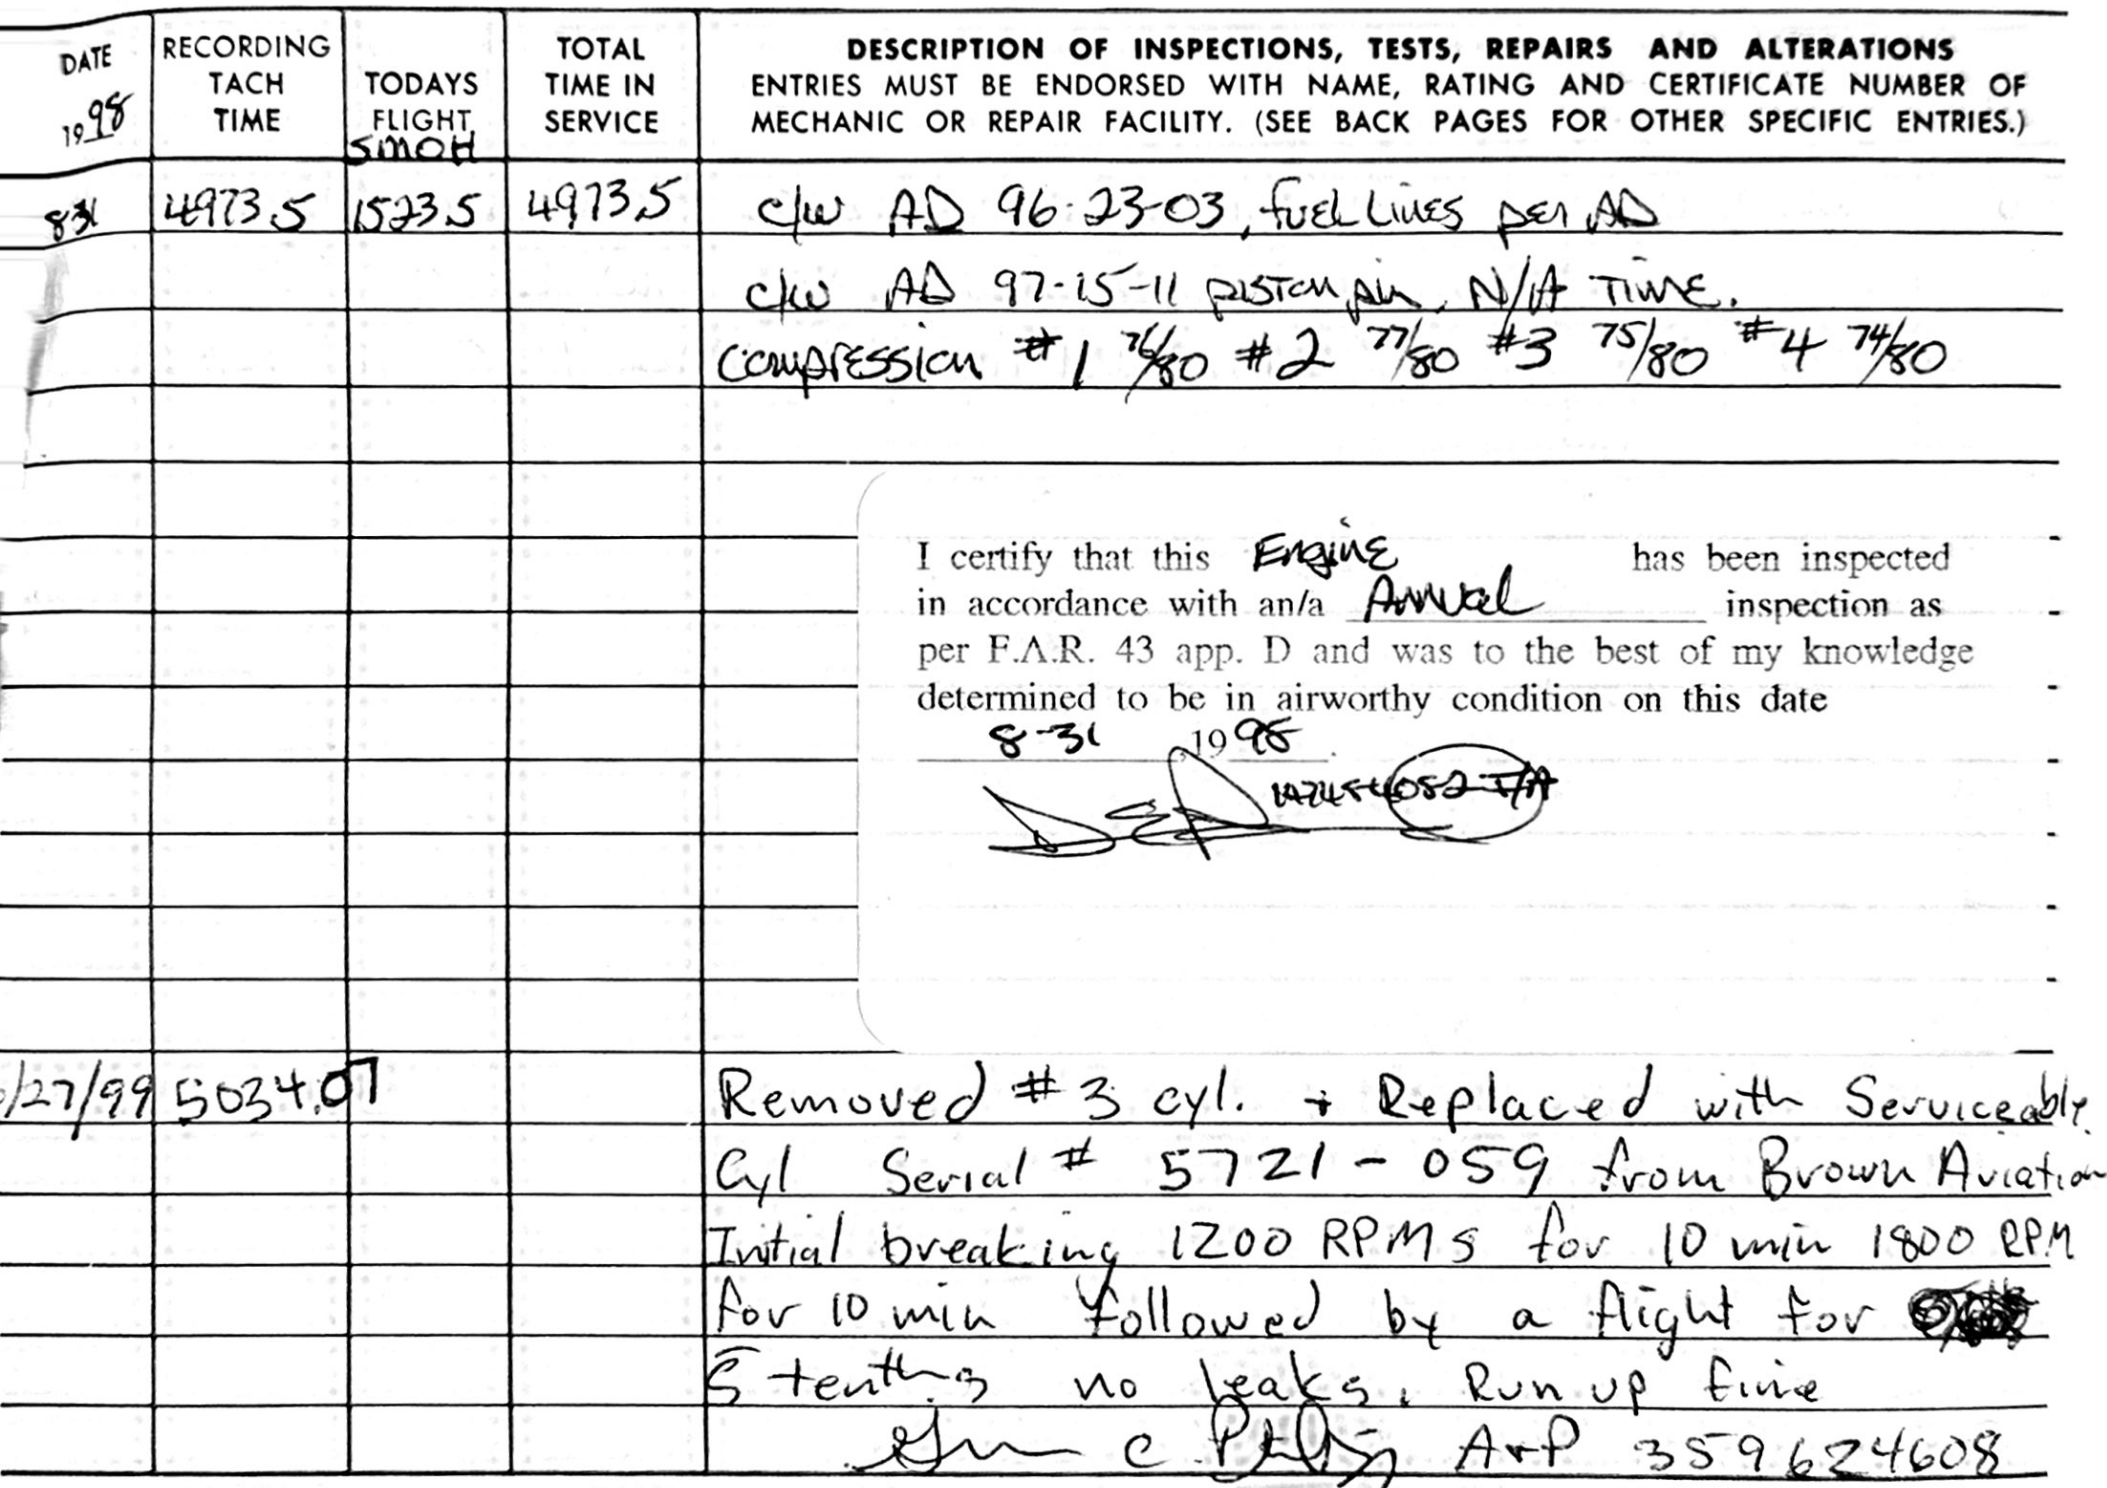 DATE RECORDING TACH TIME TODAYS FLIGHT TOTAL TIME IN SERVICE DESCRIPTION OF INSPECTIONS, TESTS, REPAIRS AND ALTERATIONS
ENTRIES MUST BE ENDORSED WITH NAME, RATING AND CERTIFICATE NUMBER OF
MECHANIC OR REPAIR FACILITY. (SEE BACK PAGES FOR OTHER SPECIFIC ENTRIES.)
1998 SMOH
8-31 4973.5 1523.5 4973.5 c/w AD 96-23-03, fuel Lines per AD
c/w AD 97-15-11 piston pin, N/A Time.
compression #1 76/80 #2 77/80 #3 75/80 #4 74/80
I certify that this Engine has been inspected
in accordance with an/a Annual inspection as
per F.A.R. 43 app. D and was to the best of my knowledge
determined to be in airworthy condition on this date
8-31 1998
I/A
/27/99 5034.07 Removed #3 cyl. + Replaced with Serviceable
Cyl Serial # 5721-059 from Brown Aviation
Initial breaking 1200 RPMs for 10 min 1800 RPM
for 10 min followed by a flight for
5 tenths no leaks. Run up fine
C A+P 359624608